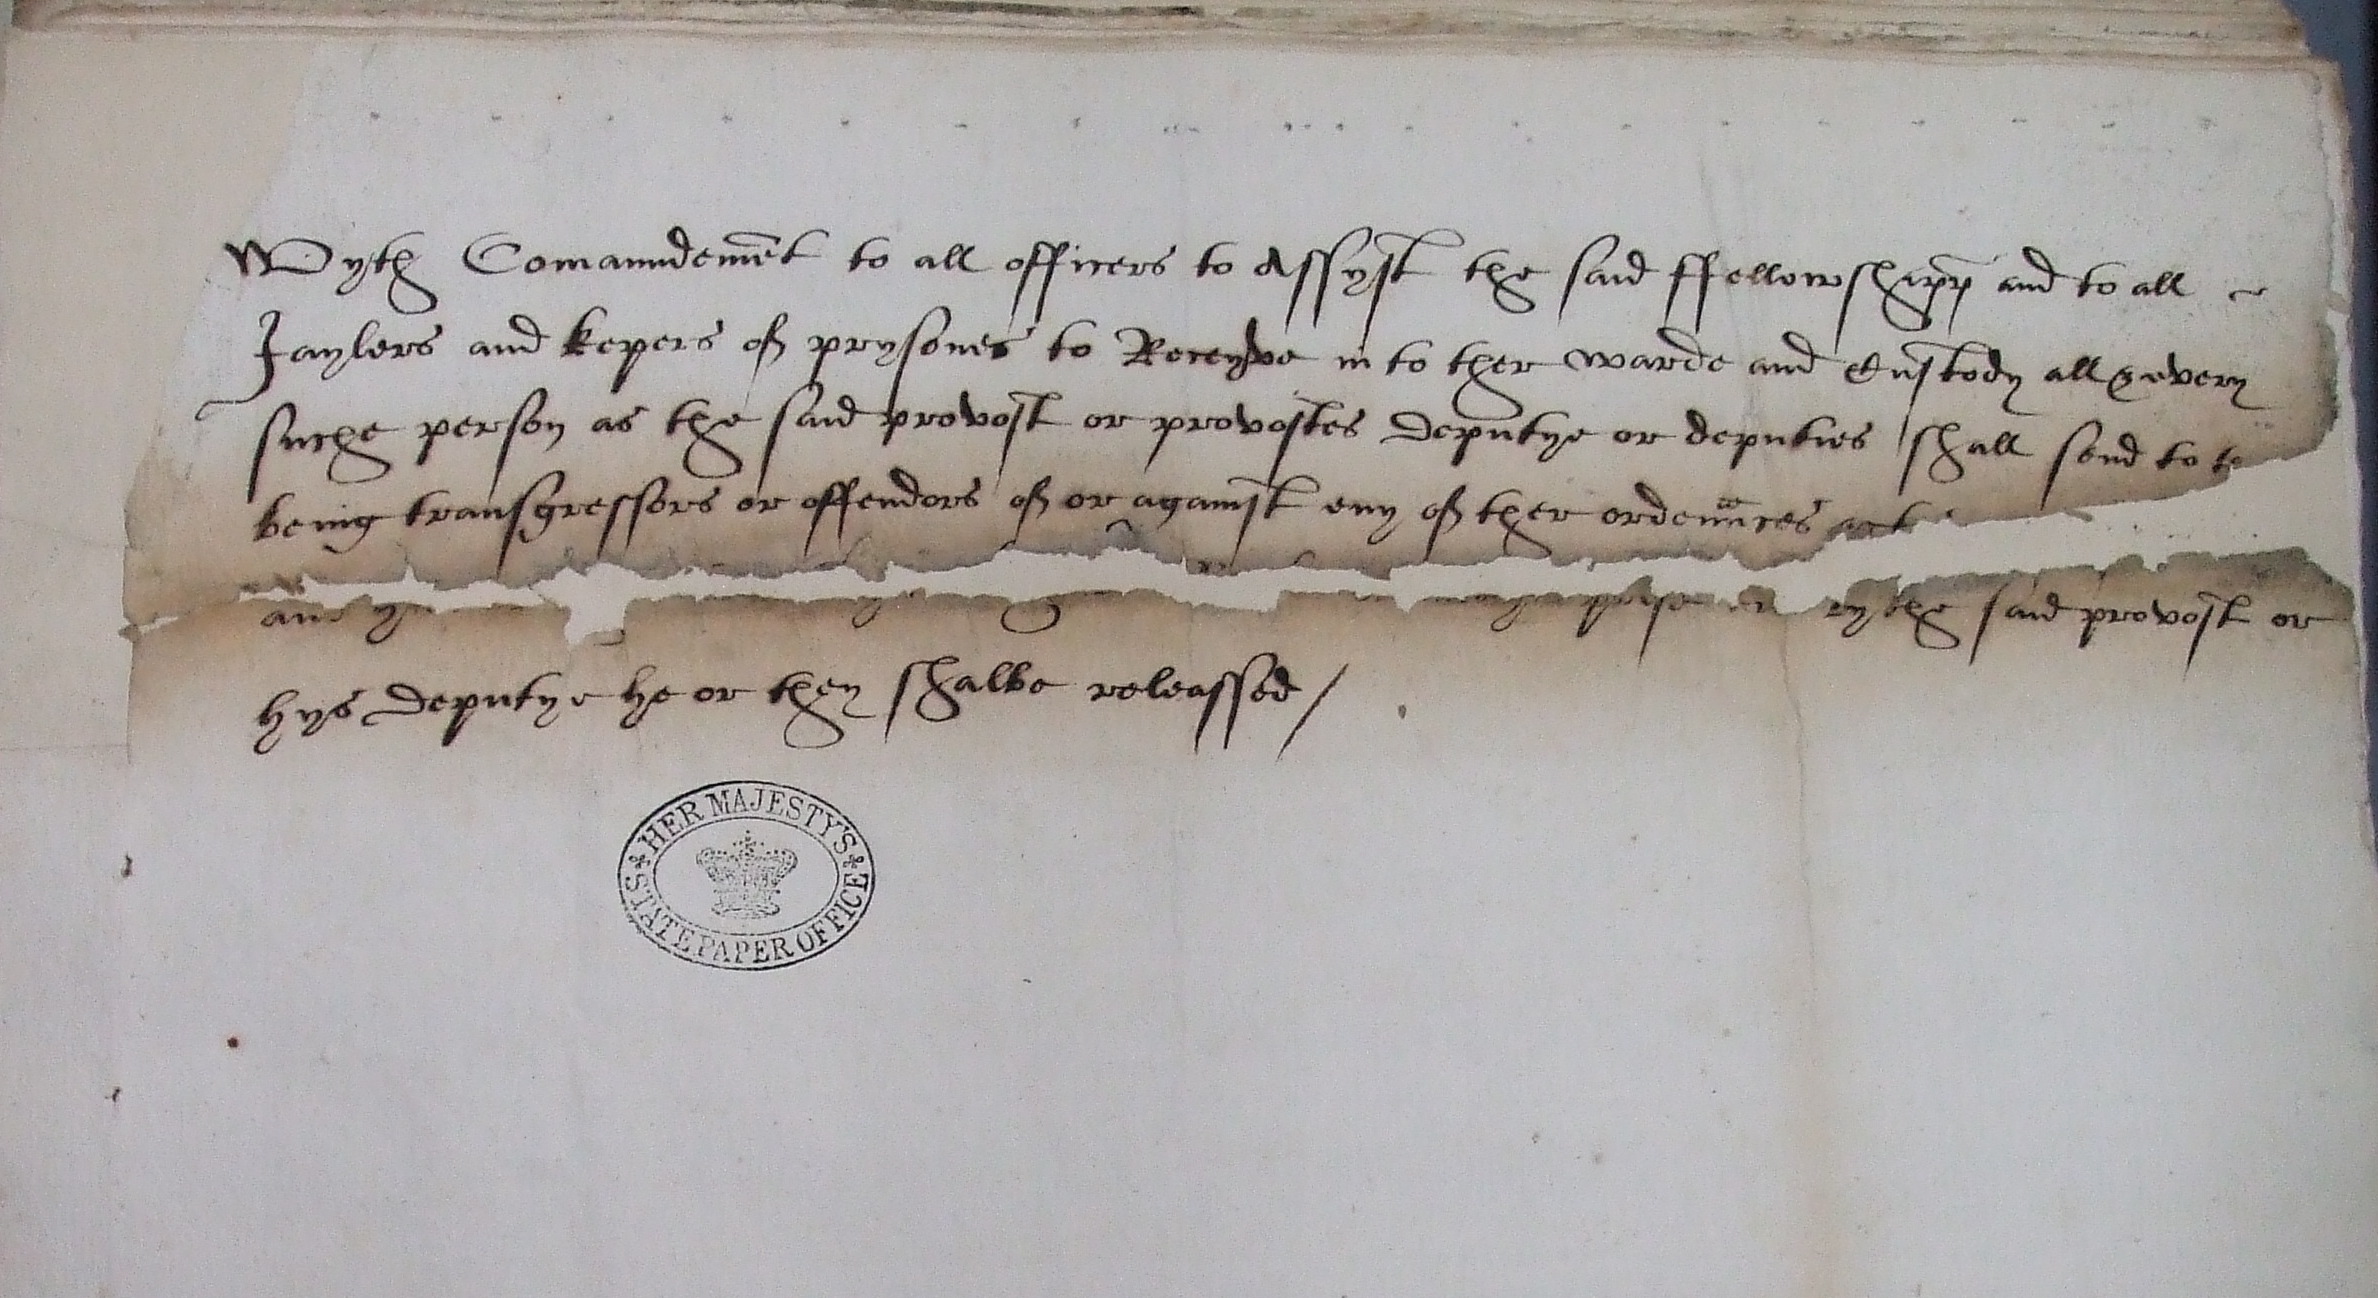 Wyth Comaundemēt to all officers to Assyst the said ffellowshipp and to all
Jaylers and kepers of prysones to Receyve in to ther warde and Custody all & every
suche person as the said provost or provostes deputye or deputies shall send to
being transgressors or offendors of or against eny of ther ordenances
by the said provost or
hys deputye he or they shalbe releassed/
HER MAJESTY'S
STATE PAPER OFFICE